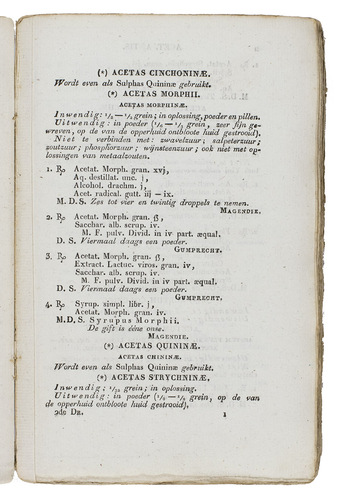 (*) ACETAS CINCHONINÆ.
Wordt even als Sulphas Quininæ gebruikt.
(*) ACETAS MORPHII.
ACETAS MORPHINÆ.
Inwendig: 1/8 — 1/2 grein; in oplossing, poeder en pillen.
Uitwendig: in poeder (1/2 — 1/2 grein, zeer fijn ge-
wreven, op de van de opperhuid ontbloote huid gestrooid).
Niet te verbinden met: zwavelzuur; salpeterzuur;
zoutzuur; phosphorzuur; wijnsteenzuur; ook niet met op-
lossingen van metaalzouten.
1. ℞ Acetat. Morph. gran. xvj,
Aq. destillat. unc. j,
Alcohol. drachm. j,
Acet. radical. gutt. iij — ix.
M. D. S. Zes tot vier en twintig droppels te nemen.
MAGENDIE.
2. ℞ Acetat. Morph. gran. ß,
Sacchar. alb. scrup. iv.
M. F. pulv. Divid. in iv part. æqual.
D. S. Viermaal daags een poeder.
GUMPRECHT.
3. ℞ Acetat. Morph. gran. ß,
Extract. Lactuc. viros. gran. iv,
Sacchar. alb. scrup. iv.
M. F. pulv. Divid. in iv part. æqual.
D. S. Viermaal daags een poeder.
GUMPRECHT.
4. ℞ Syrup. simpl. libr. j,
Acetat. Morph. gran. iv.
M. D. S. Syrupus Morphii.
De gift is ééne once.
MAGENDIE.
(*) ACETAS QUININÆ.
ACETAS CHININÆ.
Wordt even als Sulphas Quininæ gebruikt.
(*) ACETAS STRYCHNINÆ.
Inwendig; 1/12 grein; in oplossing.
Uitwendig: in poeder (1/8 — 1/2 grein, op de van
de opperhuid ontbloote huid gestrooid),
2de Dr. 1